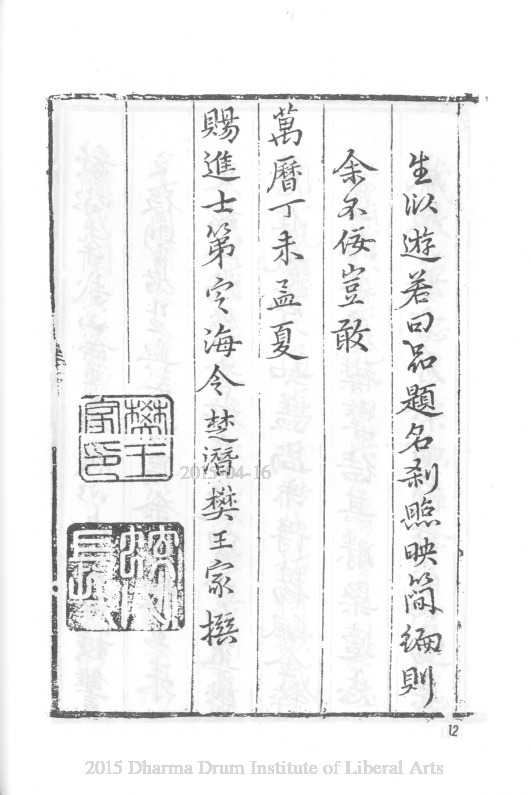 生以遊若曰品題名剎照映簡緗則
余不佞豈敢
萬曆丁未孟夏
賜進士第定海令楚潛樊王家撰
樊王家印
2015-04-16
12
2015 Dharma Drum Institute of Liberal Arts